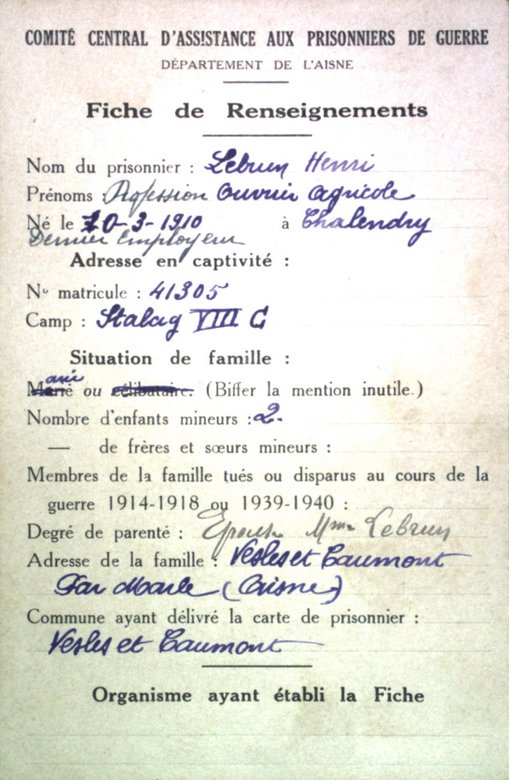 COMITÉ CENTRAL D'ASSISTANCE AUX PRISONNIERS DE GUERRE
DÉPARTEMENT DE L'AISNE
Fiche de Renseignements
Nom du prisonnier : Lebrun Henri
Prénoms Profession Ouvrier agricole
Né le 20-3-1910 à Chalendry
Dernier Employeur
Adresse en captivité :
No matricule : 41305
Camp : Stalag VIII C
Situation de famille :
Marié ou célibataire. (Biffer la mention inutile.)
Nombre d'enfants mineurs : 2.
— de frères et sœurs mineurs :
Membres de la famille tués ou disparus au cours de la
guerre 1914-1918 ou 1939-1940 :
Degré de parenté : Epouse Mme Lebrun
Adresse de la famille : Vesles et Caumont
Par Marle (Aisne)
Commune ayant délivré la carte de prisonnier :
Vesles et Caumont
Organisme ayant établi la Fiche